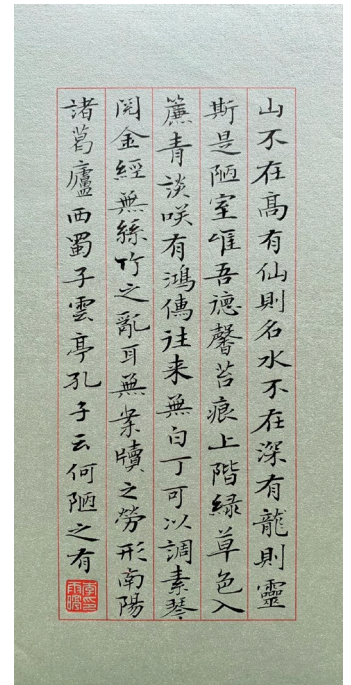 山不在高有仙則名水不在深有龍則靈
斯是陋室惟吾德馨苔痕上階緑草色入
簾青談咲有鴻儔往来無白丁可以調素琴
閱金經無絲竹之亂耳無案牘之勞形南陽
諸葛廬西蜀子雲亭孔子云何陋之有